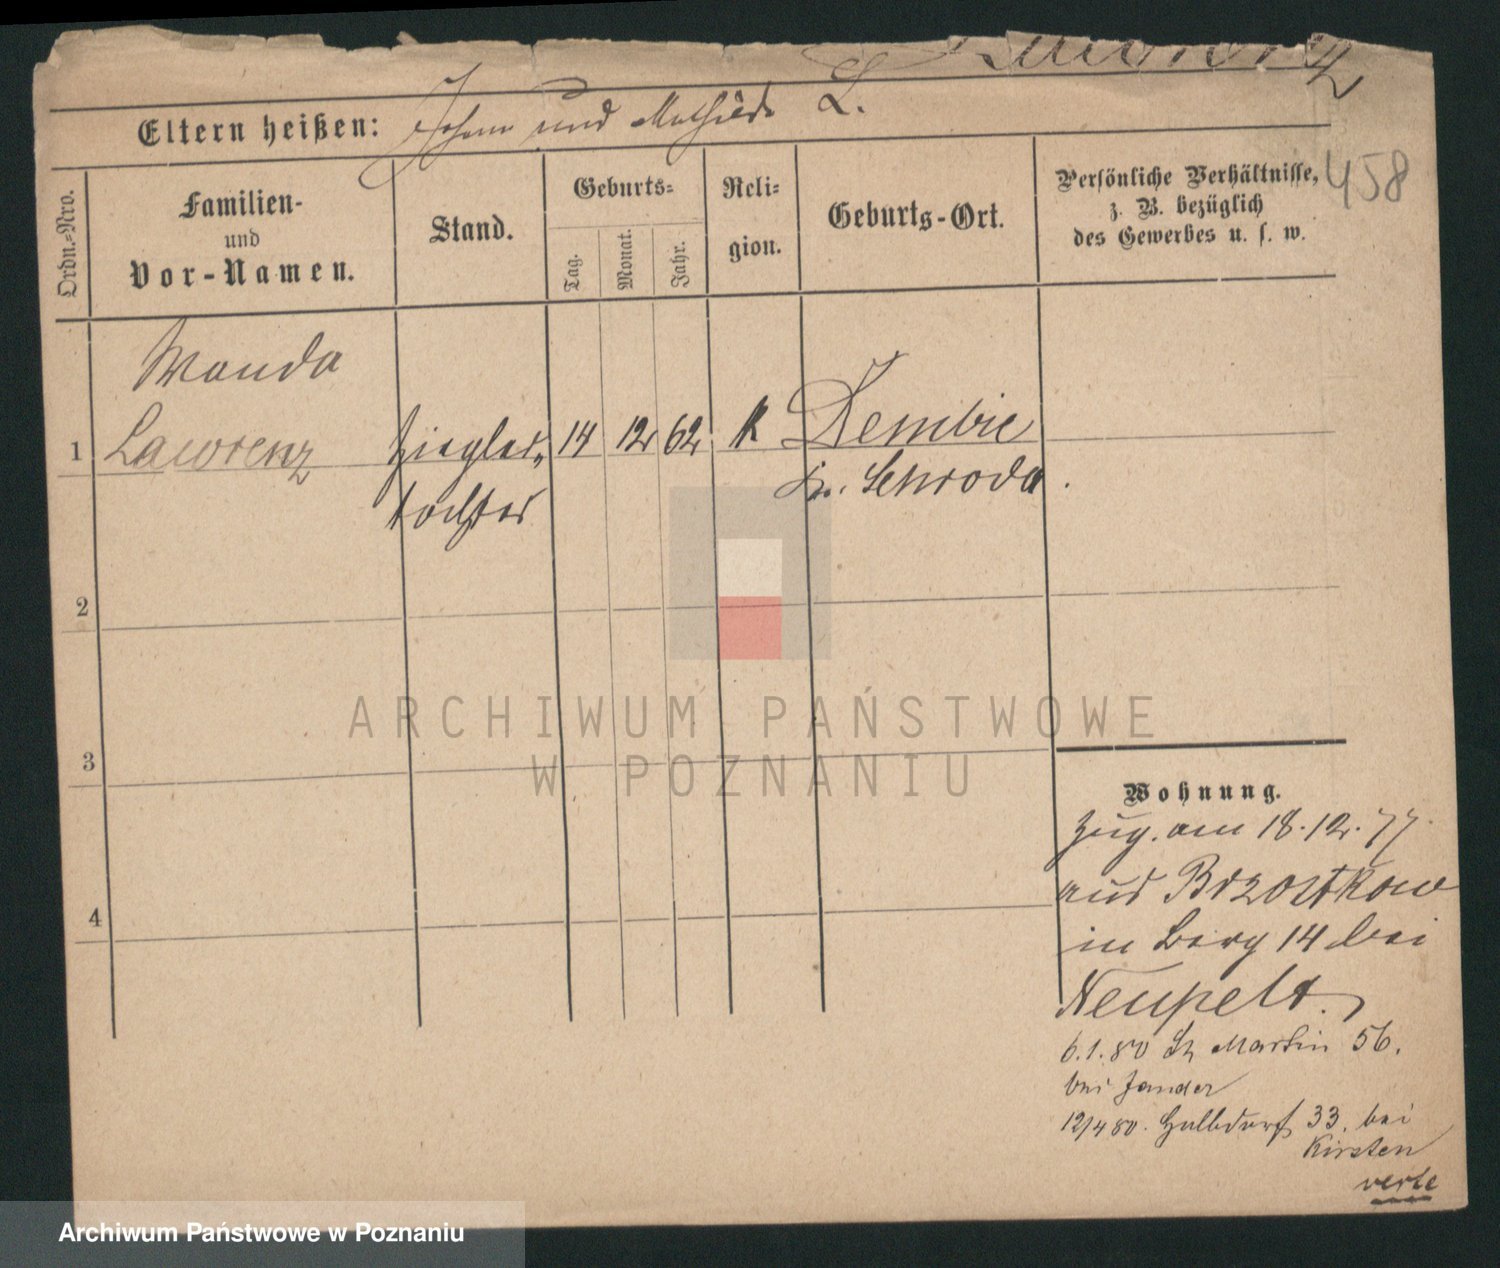 Lawrenz
Eltern heißen: Johann und Mathilde L.
458
Ordn.-Nro.
Familien-
und
Vor-Namen.
Stand.
Geburts-
Tag.
Monat.
Jahr.
Reli-
gion.
Geburts-Ort.
Persönliche Verhältnisse,
z. B. bezüglich
des Gewerbes u. s. w.
Wanda
1 Lawrenz Ziegler- 14 12 62 k Dembie
tochter Kr. Schroda.
2
3
4
ARCHIWUM PAŃSTWOWE
W POZNANIU
Wohnung.
Zug. am 18.12.77.
aus Brzostkow
in Berg 14 bei
Neupelt.
6.1.80 St Martin 56.
bei Jander
12/4 80. Halbdorf 33. bei
Kirsten
verte
Archiwum Państwowe w Poznaniu